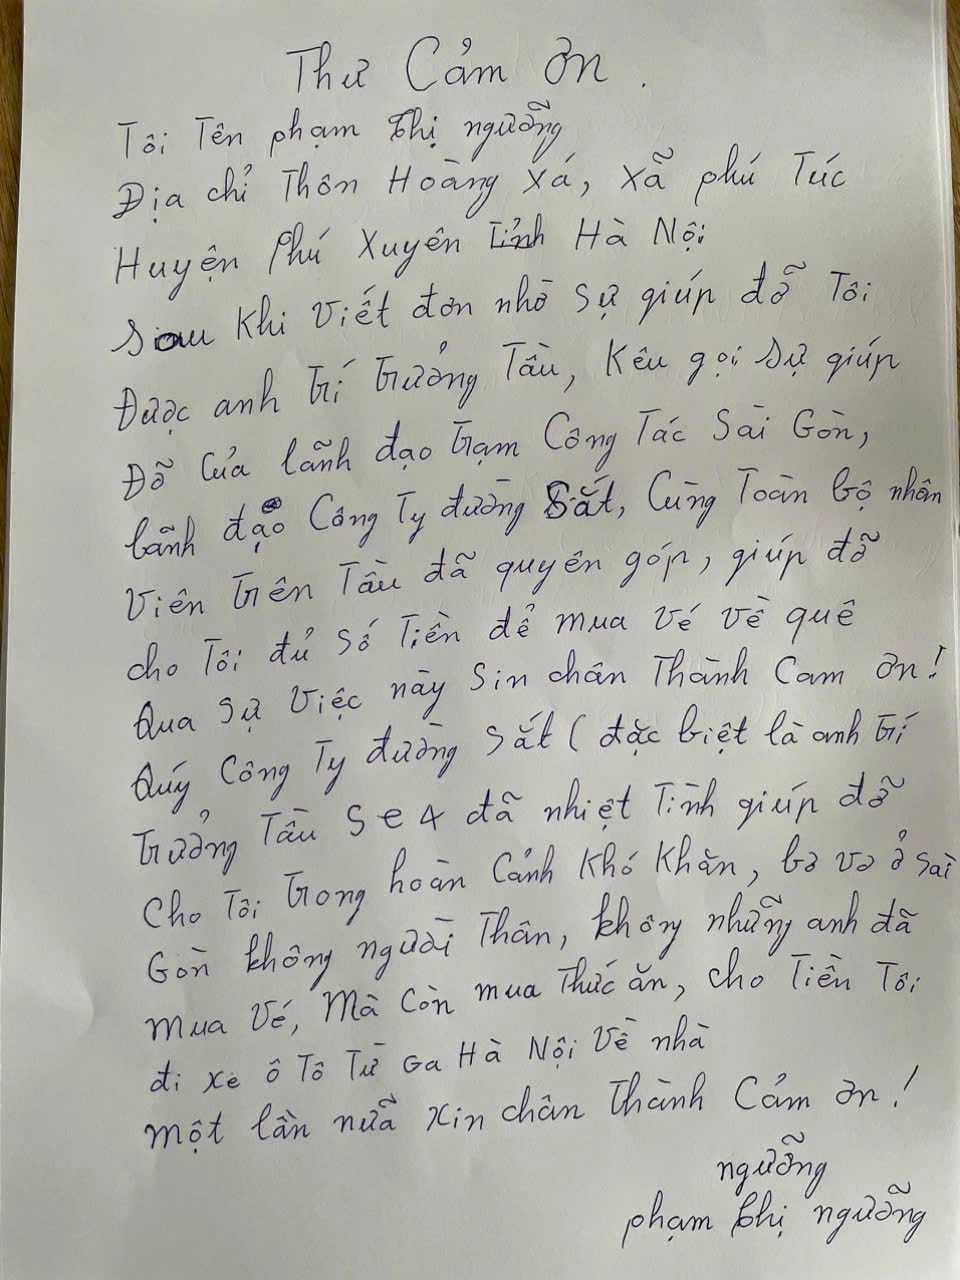 Thư Cảm ơn.
Tôi Tên phạm thị ngưỡng
Địa chỉ Thôn Hoàng xá, xã phú Túc
Huyện Phú Xuyên Tỉnh Hà Nội
Sau khi viết đơn nhờ sự giúp đỡ Tôi
Được anh trí trưởng Tàu, kêu gọi sự giúp
Đỡ của lãnh đạo trạm Công Tác Sài Gòn,
lãnh đạo Công Ty đường sắt, Cùng Toàn bộ nhân
viên trên Tàu đã quyên góp, giúp đỡ
cho Tôi đủ số Tiền để mua vé về quê
Qua sự việc này sin chân Thành Cam ơn!
Qúy Công Ty đường sắt ( đặc biệt là anh trí
trưởng Tàu se4 đã nhiệt Tình giúp đỡ
cho Tôi trong hoàn Cảnh khó khăn, bơ vơ ở sài
Gòn không người Thân, không những anh đã
mua vé, Mà Còn mua Thức ăn, cho Tiền Tôi
đi xe ô Tô Từ Ga Hà Nội về nhà
một lần nữa xin chân Thành Cảm ơn!
ngưỡng
phạm thị ngưỡng